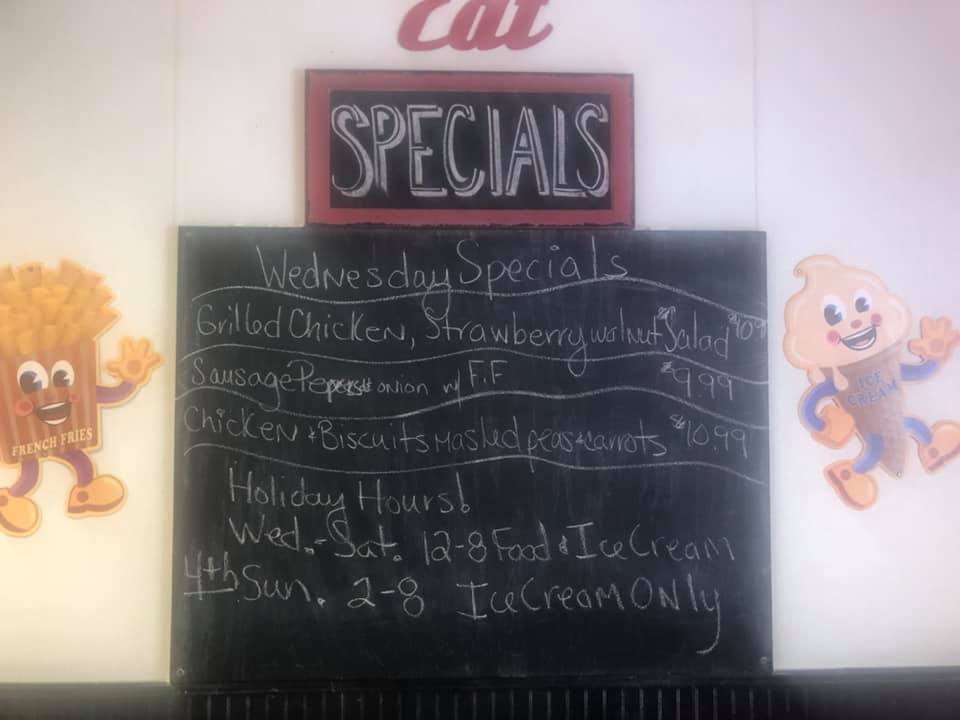 Eat
SPECIALS
Wednesday Specials
Grilled Chicken, Strawberry walnut Salad
Sausage onion w/ F.F $9.99
Chicken & Biscuits Mashed peas & carrots $10.99
Holiday Hours!
Wed.-Sat. 12-8 Food & Ice Cream
4th Sun. 2-8 Ice Cream Only
FRENCH FRIES
ICE
CREAM